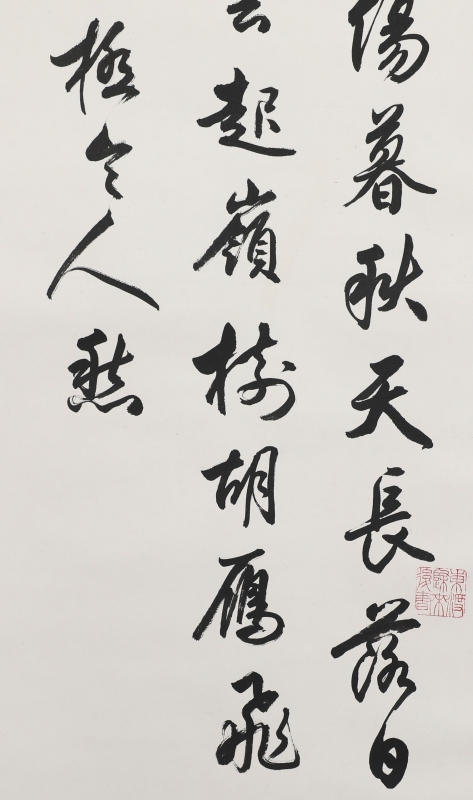 傷暮秋天長落日
雲起嶺樹胡鴈飛
極令人愁